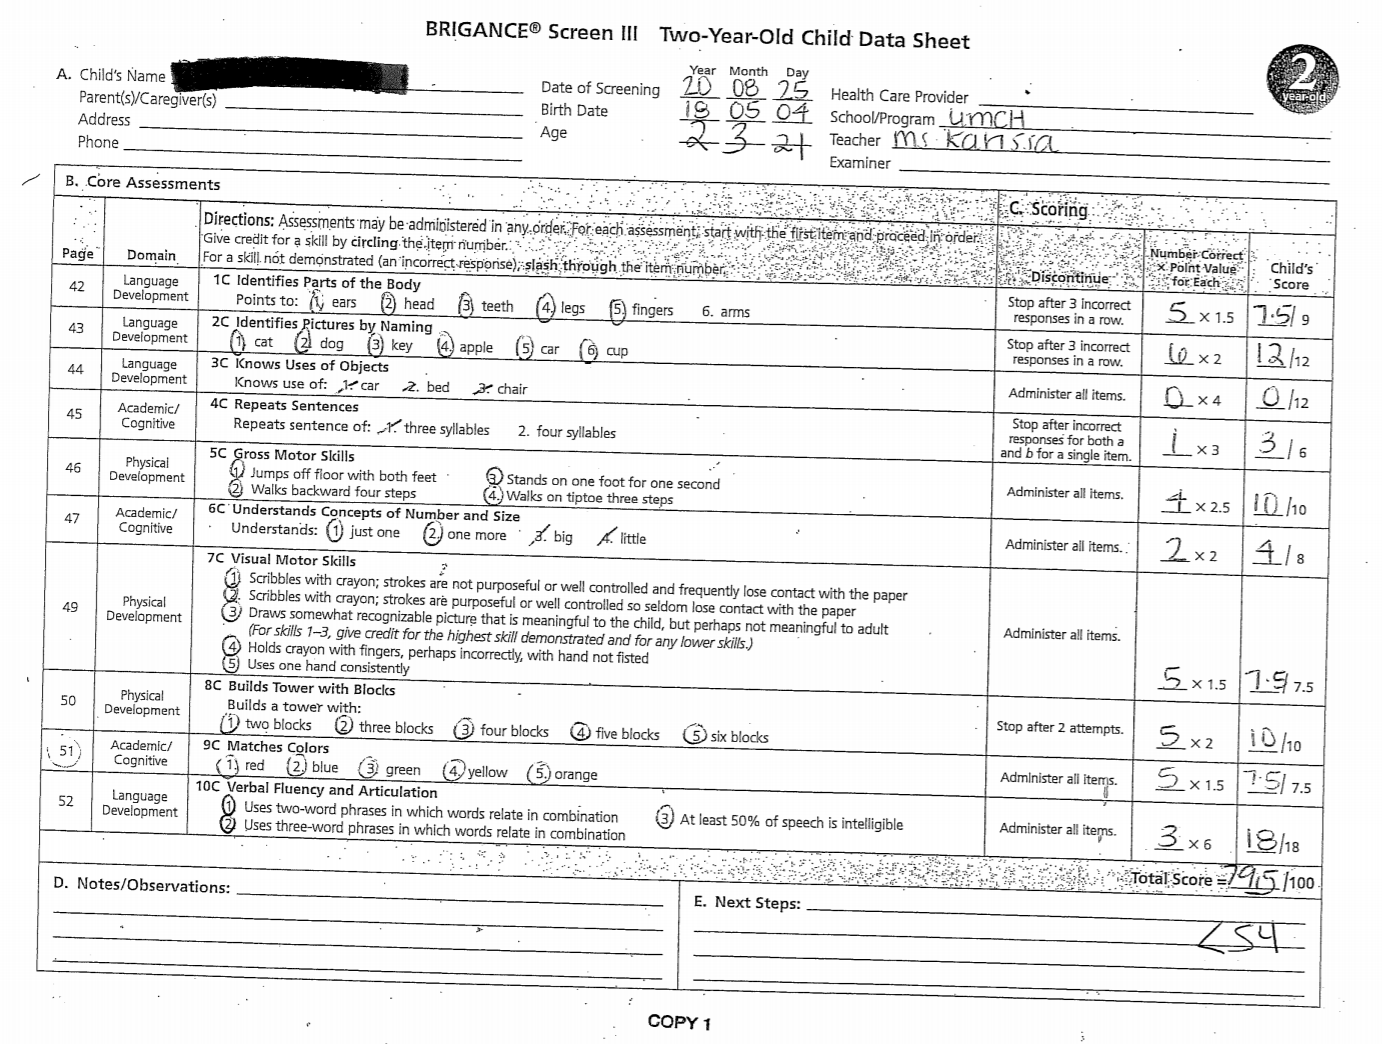 BRIGANCE® Screen III Two-Year-Old Child Data Sheet
2
year-old
A. Child's Name
Parent(s)/Caregiver(s)
Address
Phone
Year Month Day
Date of Screening 20 08 25
Birth Date 18 05 04
Age 2 3 21
Health Care Provider
School/Program UMCH
Teacher Ms Kansia
Examiner
B. Core Assessments
C. Scoring
Page
Domain
Directions: Assessments may be administered in any order. For each assessment, start with the first item and proceed in order.
Give credit for a skill by circling the item number.
For a skill not demonstrated (an incorrect response), slash through the item number.
Discontinue
Number Correct
× Point Value
for Each
Child's
Score
42
Language
Development
1C Identifies Parts of the Body
Points to: 1. ears 2. head 3. teeth 4. legs 5. fingers 6. arms
Stop after 3 incorrect
responses in a row.
5 × 1.5
7.5/9
43
Language
Development
2C Identifies Pictures by Naming
1. cat 2. dog 3. key 4. apple 5. car 6. cup
Stop after 3 incorrect
responses in a row.
6 × 2
12/12
44
Language
Development
3C Knows Uses of Objects
Knows use of: 1. car 2. bed 3. chair
Administer all items.
0 × 4
0/12
45
Academic/
Cognitive
4C Repeats Sentences
Repeats sentence of: 1. three syllables 2. four syllables
Stop after incorrect
responses for both a
and b for a single item.
1 × 3
3/6
46
Physical
Development
5C Gross Motor Skills
1. Jumps off floor with both feet 3. Stands on one foot for one second
2. Walks backward four steps 4. Walks on tiptoe three steps
Administer all items.
4 × 2.5
10/10
47
Academic/
Cognitive
6C Understands Concepts of Number and Size
Understands: 1. just one 2. one more 3. big 4. little
Administer all items.
2 × 2
4/8
49
Physical
Development
7C Visual Motor Skills
1. Scribbles with crayon; strokes are not purposeful or well controlled and frequently lose contact with the paper
2. Scribbles with crayon; strokes are purposeful or well controlled so seldom lose contact with the paper
3. Draws somewhat recognizable picture that is meaningful to the child, but perhaps not meaningful to adult
(For skills 1–3, give credit for the highest skill demonstrated and for any lower skills.)
4. Holds crayon with fingers, perhaps incorrectly, with hand not fisted
5. Uses one hand consistently
Administer all items.
5 × 1.5
7.5/7.5
50
Physical
Development
8C Builds Tower with Blocks
Builds a tower with:
1. two blocks 2. three blocks 3. four blocks 4. five blocks 5. six blocks
Stop after 2 attempts.
5 × 2
10/10
51
Academic/
Cognitive
9C Matches Colors
1. red 2. blue 3. green 4. yellow 5. orange
Administer all items.
5 × 1.5
7.5/7.5
52
Language
Development
10C Verbal Fluency and Articulation
1. Uses two-word phrases in which words relate in combination 3. At least 50% of speech is intelligible
2. Uses three-word phrases in which words relate in combination
Administer all items.
3 × 6
18/18
Total Score = 79.5/100
D. Notes/Observations:
E. Next Steps:
<54
COPY 1